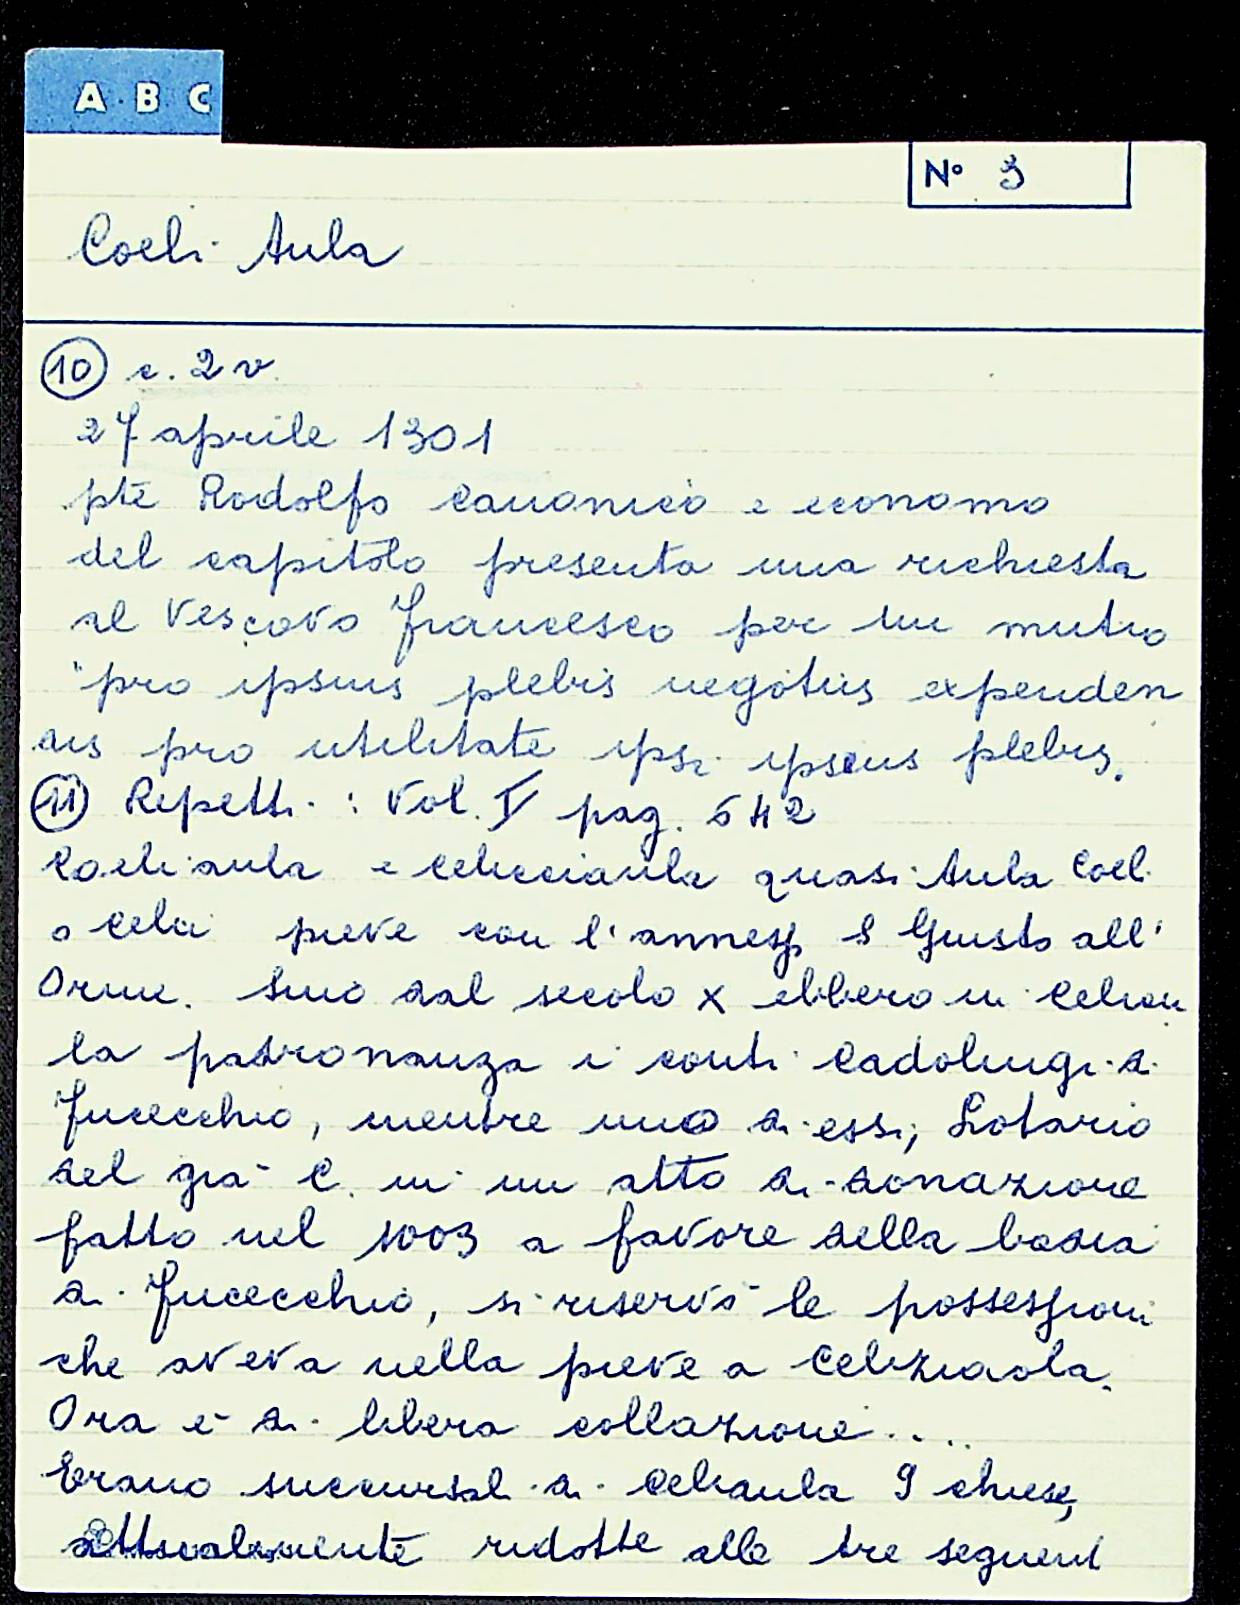 A B C
N° 3
Coeli Aula
10 c. 2 v.
27 aprile 1301
pte Rodolfo canonico e economo
del capitolo presenta una richiesta
al Vescovo Francesco per un mutuo
"pro ipsius plebis negotiis expenden
dis pro utilitate ips. ipsius plebis.
11 Repetti : Vol. V pag. 542
Coeli aula e Celicciaula quasi Aula Coeli
o Celii pieve con l'annesso S Giusto all'
Orme. Sino dal secolo X ebbero in
la padronanza i conti Cadolingi di
Fucecchio, mentre uno di essi, Lotario
del già C. in un atto di donazione
fatto nel 1003 a favore della badia
di Fucecchio, si riservò le possessioni
che aveva nella pieve a Celiziaola.
Ora è di libera collazione....
Erano succursali di Celiaula 9 chiese,
attualmente ridotte alle tre seguenti